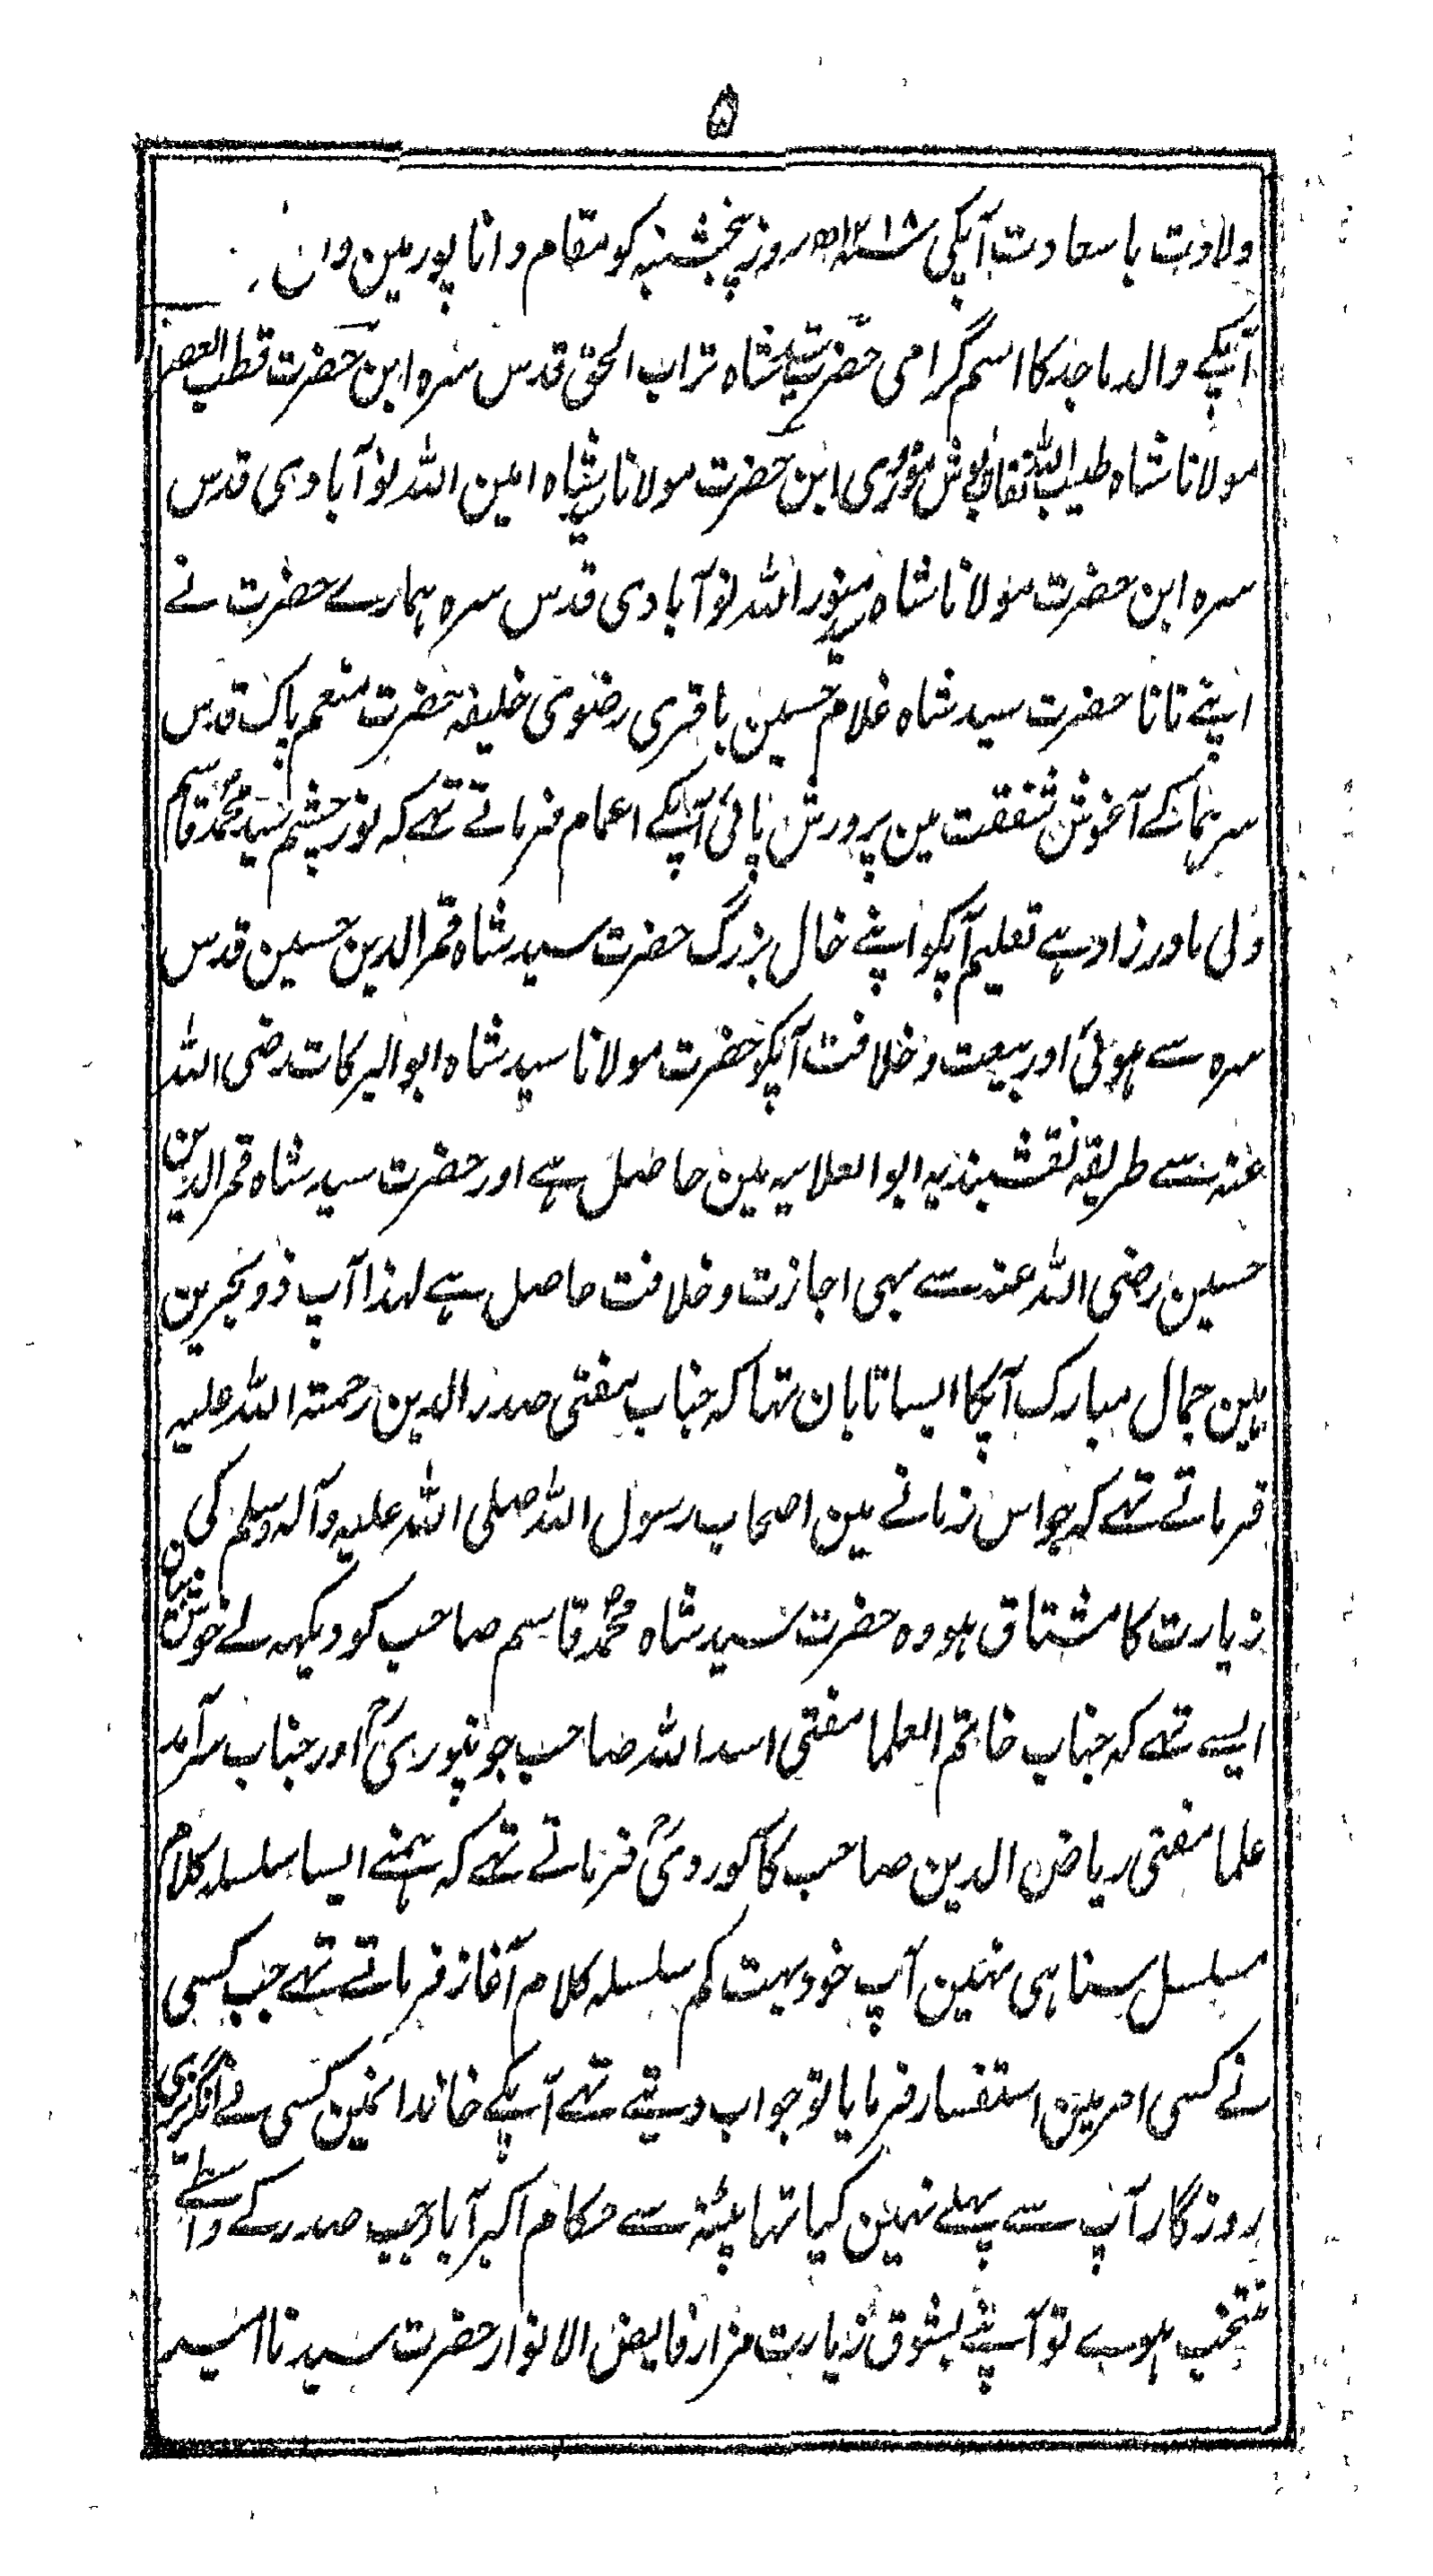 ۵
ولادت با سعادت آپکی ۱۲۱۸ھ روز پنجشنبہ کو مقام دانا پور مین
آپکے والد ماجد کا اسم گرامی حضرت سید شاہ تراب الحق قدس سرہ ابن حضرت قطب العصر
مولانا شاہ طیب اللہ نقاب پوش ابن حضرت مولانا سید شاہ امین اللہ نوآبادی قدس
سرہ ابن حضرت مولانا سید شاہ منور اللہ نوآبادی قدس سرہ ہمارے حضرت نے
اپنے نانا حضرت سید شاہ غلام حسین باقری رضوی خلیفہ حضرت منعم پاک قدس
سرہما کے آغوش شفقت مین پرورش پائی آپکے اعمام فرماتے تھے کہ نور چشم سید محمد قاسم
ولی مادر زاد ہے تعلیم آپکو اپنے خال بزرگ حضرت سید شاہ قمر الدین حسین قدس
سرہ سے ہوئی اور بیعت و خلافت آپکو حضرت مولانا سید شاہ ابو البرکات رضی اللہ
عنہ سے طریقہ نقشبندیہ ابو العلایہ مین حاصل ہے اور حضرت سید شاہ قمر الدین
حسین رضی اللہ عنہ سے بہی اجازت و خلافت حاصل ہے لہذا آپ ذو بحرین
ہین جمال مبارک آپکا ایسا تابان تہا کہ جناب مفتی صدر الدین رحمتہ اللہ علیہ
فرماتے تہے کہ جو اس زمانے مین اصحاب رسول اللہ صلی اللہ علیہ وآلہ وسلم کی
زیارت کا مشتاق ہو وہ حضرت سید شاہ محمد قاسم صاحب کو دیکہہ لے خوش بیان
ایسے تہے کہ جناب خاتم العلما مفتی اسد اللہ صاحب جونپوری اور جناب سرآمد
علما مفتی ریاض الدین صاحب کاکوروی فرماتے تہے کہ ہمنے ایسا سلسلہ کلام
مسلسل سنا ہی نہین آپ خود بہت کم سلسلہ کلام آغاز فرماتے تہے جب کسی
نے کسی امر مین استفسار فرمایا تو جواب دیتے تہے آپکے خاندانمین کسی نے انگریزی
روزگار آپ سے پہلے نہین کیا تہا پٹنہ سے حکام اکبرآباد جب صدر کے واسطے
منتخب ہوے تو آپنے بشوق زیارت مزار فایض الانوار حضرت سیدنا امیر